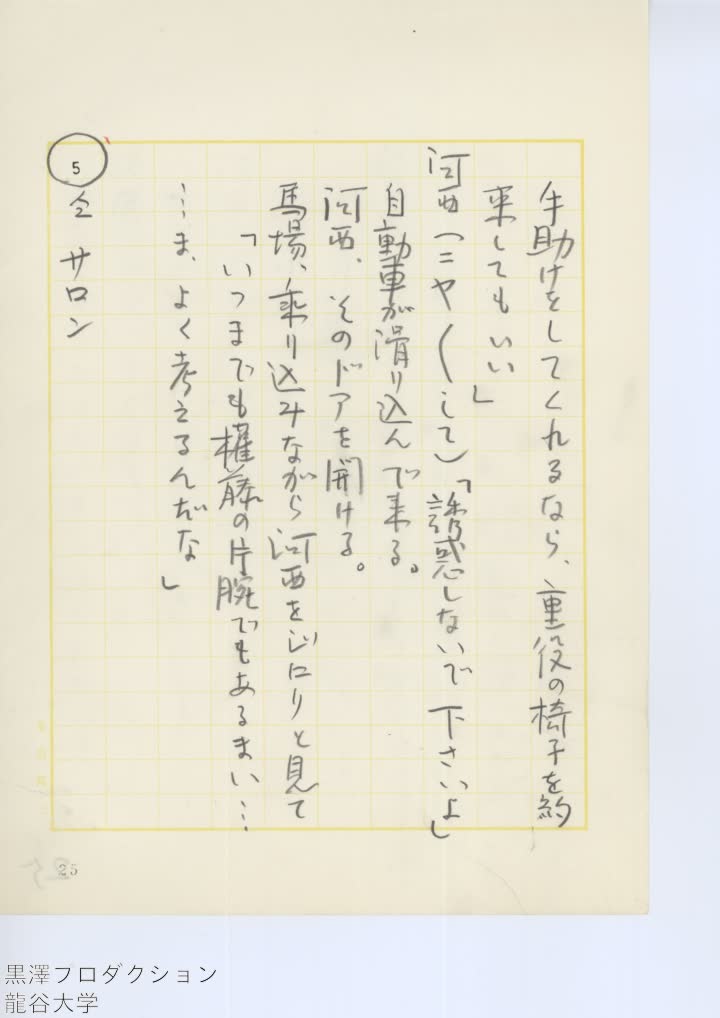 手助けをしてくれるなら、重役の椅子を約
束してもいい」
河西(ニヤ〱して)「誘惑しないで下さいよ」
自動車が滑り込んで来る。
河西、そのドアを開ける。
馬場、乗り込みながら河西をジロリと見て
「いつまでも権藤の片腕でもあるまい…
…ま、よく考えるんだな」
5
仝 サロン
25
黒澤プロダクション
龍谷大学